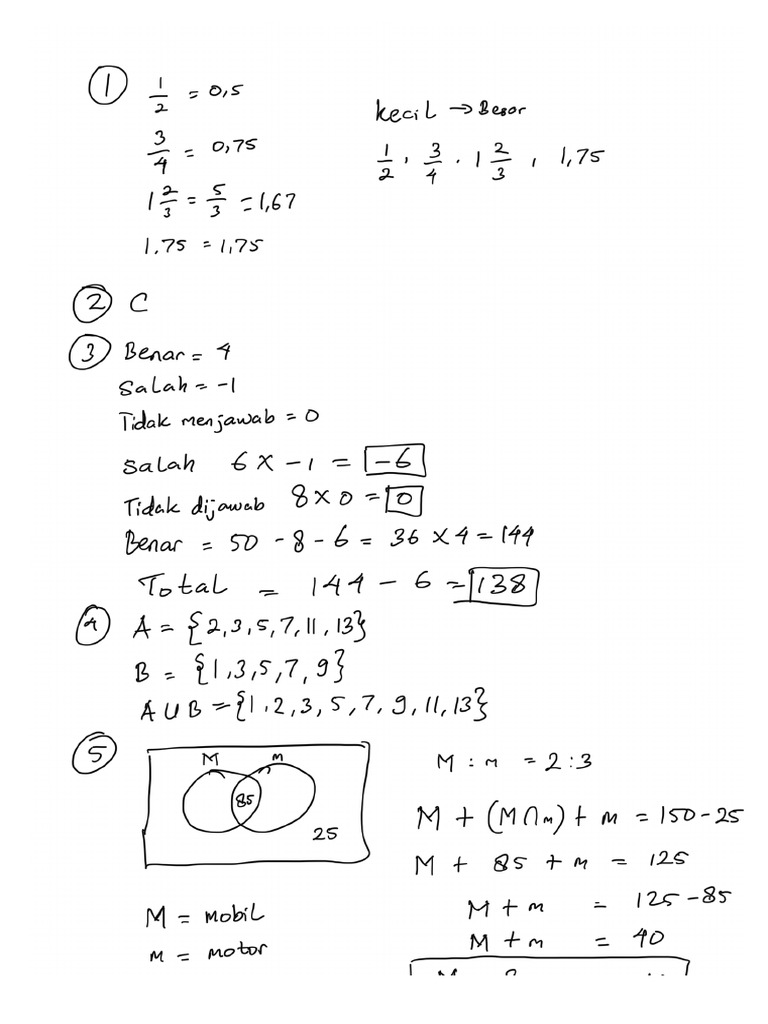 ① 1/2 = 0,5
3/4 = 0,75
1 2/3 = 5/3 = 1,67
1.75 = 1,75
kecil → Besar
1/2 , 3/4 . 1 2/3 , 1,75
② C
③ Benar = 4
Salah = -1
Tidak menjawab = 0
Salah 6 x -1 = -6
Tidak dijawab 8 x 0 = 0
Benar = 50 - 8 - 6 = 36 x 4 = 144
Total = 144 - 6 = 138
④ A = {2,3,5,7,11,13}
B = {1,3,5,7,9}
A U B = {1.2,3,5,7,9,11,13}
⑤
M m
85
25
M = mobil
m = motor
M : m = 2:3
M + (M∩m) + m = 150-25
M + 85 + m = 125
M + m = 125-85
M + m = 40